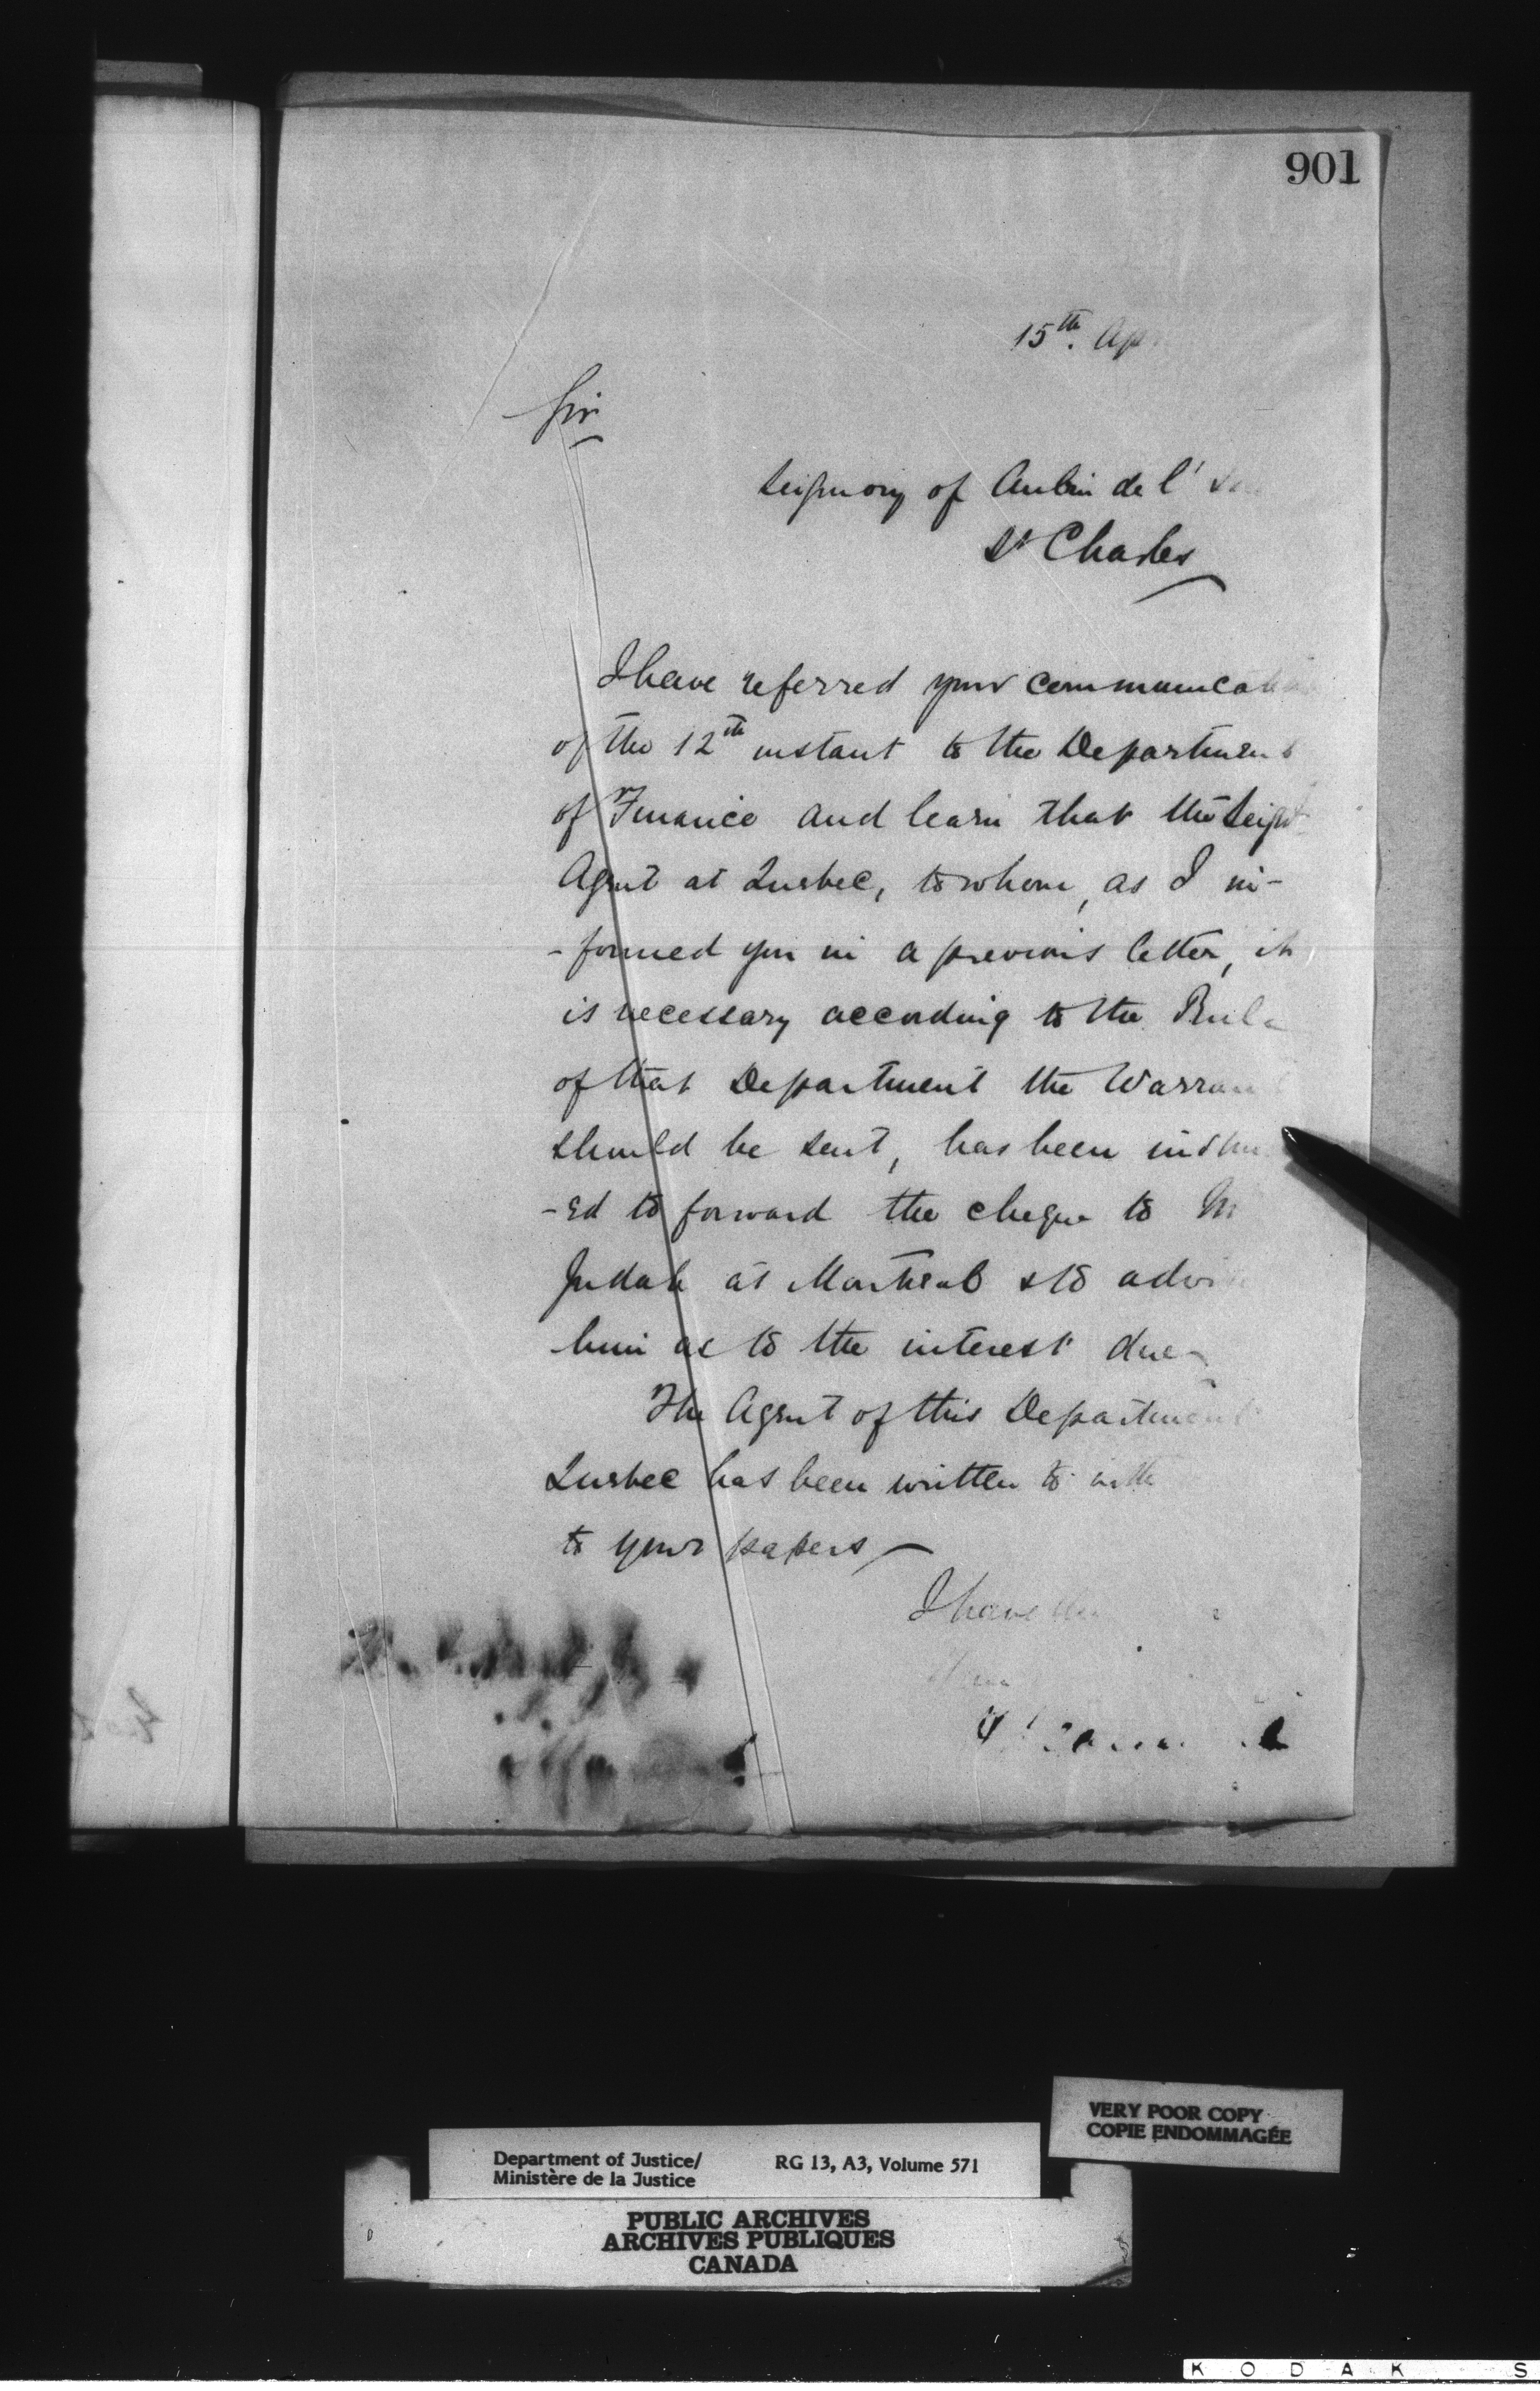 901
15th. Ap
Sir
Seignory of Aubin de l'
St Charles
I have referred your communicati
of the 12th instant to the Department
of Finance and learn that the Seig
Agent at Quebec, to whom, as I in-
-formed you in a previous letter, it
is necessary according to the Rule
of that Department the Warran
should be sent, has been
-ed to forward the cheque to M
Judah at Montreal & to advi
him as to the interest due
The Agent of this Department
Quebec has been written to
to your papers
I have
Department of Justice/
Ministère de la Justice
RG 13, A3, Volume 571
VERY POOR COPY
COPIE ENDOMMAGÉE
PUBLIC ARCHIVES
ARCHIVES PUBLIQUES
CANADA
KODAK S